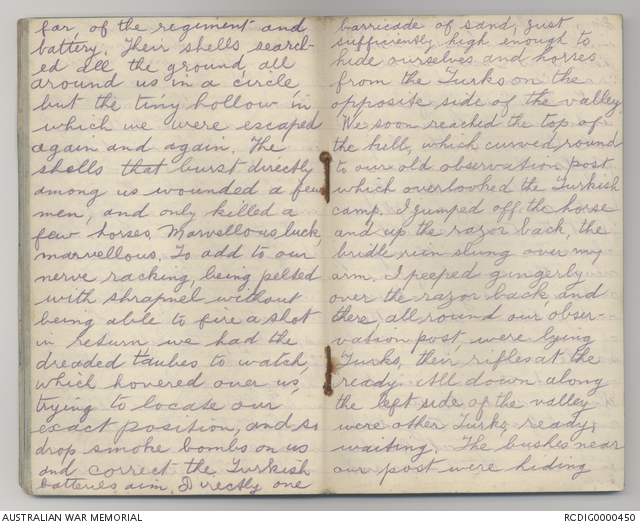 far, of the regiment and
battery. Their shells search-
ed all the ground, all
around us in a circle,
but the tiny hollow in
which we were escaped
again and again. The
shells that burst directly
among us wounded a few
men, and only killed a
few horses. Marvellous luck,
marvellous. To add to our
nerve racking, being pelted
with shrapnel without
being able to fire a shot
in return we had the
dreaded taubes to watch,
which hovered over us,
trying to locate our
exact position, and so
drop smoke bombs on us
and correct the Turkish
batteries aim. Directly one
barricade of sand, just
sufficiently high enough to
hide ourselves and horses
from the Turks on the
opposite side of the valley.
We soon reached the top of
the hill, which curved round
to our old observation post
which overlooked the Turkish
camp. I jumped off the horse
and up the razor back, the
bridle rein slung over my
arm. I peeped gingerly
over the razor back and
there, all round our obser-
vation post were lying
Turks, their rifles at the
ready. All down along
the left side of the valley
were other Turks, ready,
waiting. The bushes near
our post were hiding
AUSTRALIAN WAR MEMORIAL
RCDIG0000450